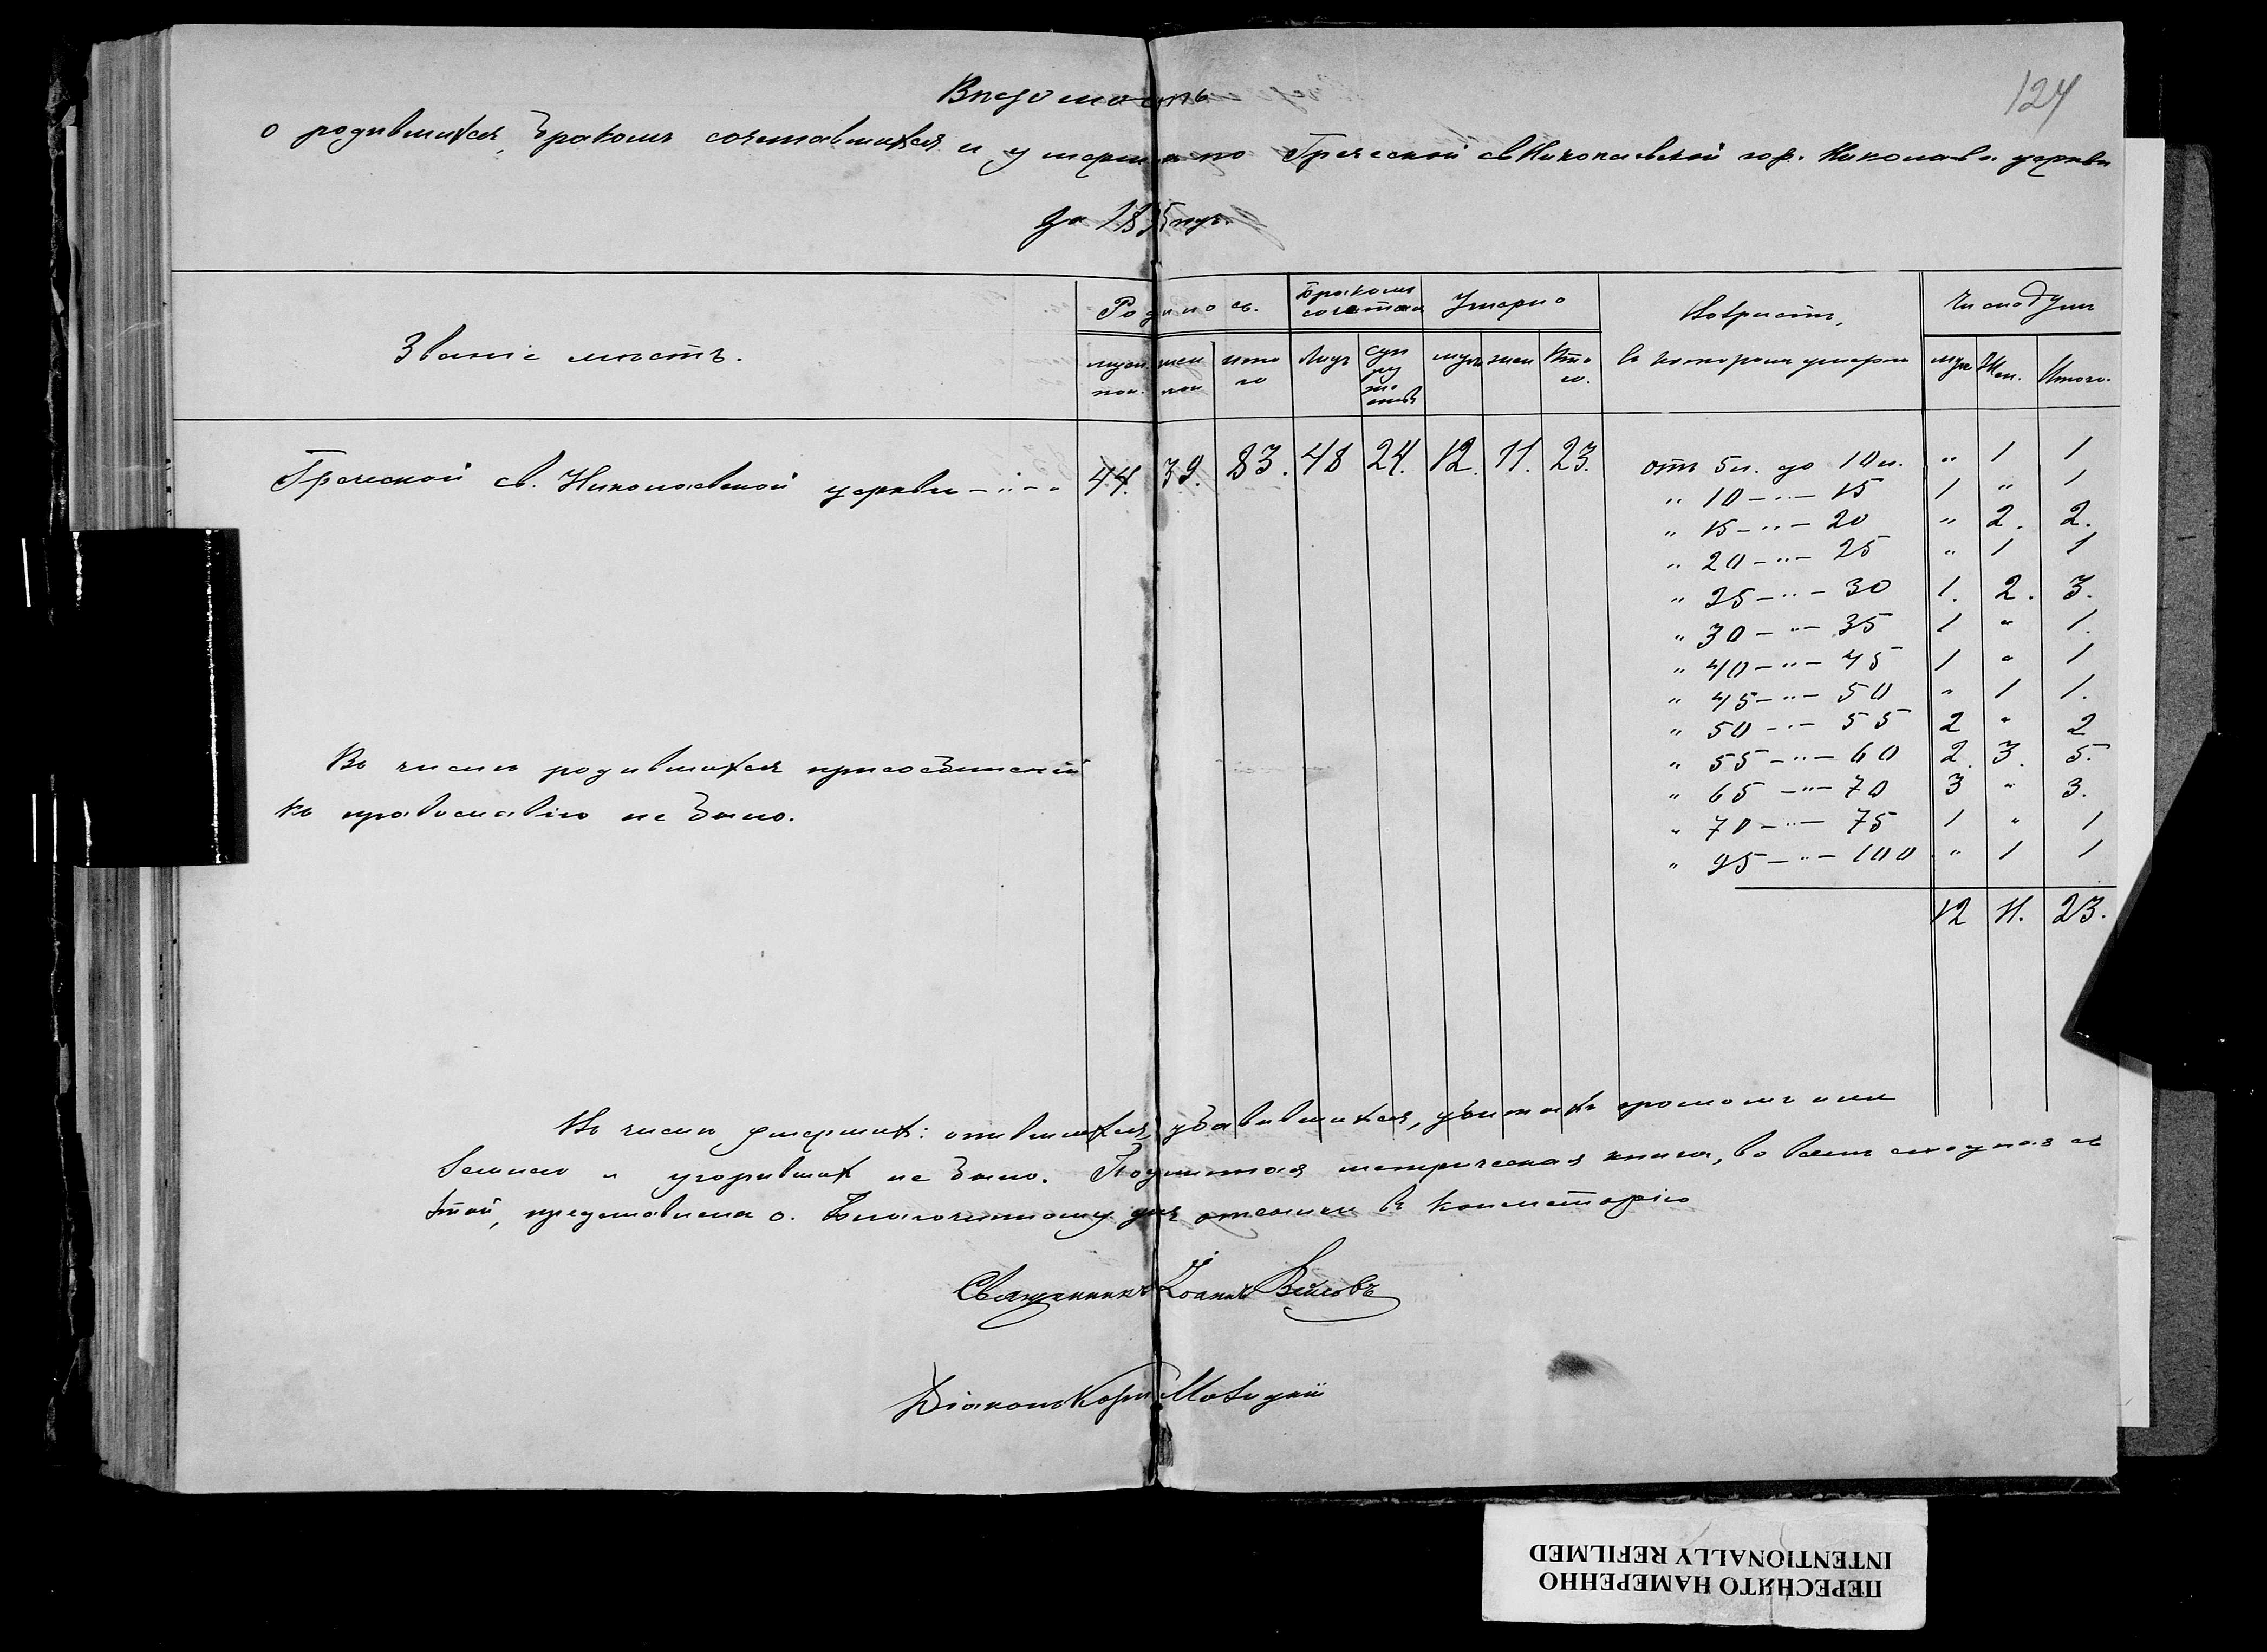 124
Вѣдомость
о родившихся, бракомъ сочетавшихся и умерш по Греческой св Николаевской гор. Николаева церкви
за 1895 годъ.
Званіе мѣстъ.
Родилось.
Бракомъ сочетан
Умерло
Возрастъ,
въ которомъ умерли
Число душ
муж. пол.
жен пол
итого
Лицъ
супружествъ
муж
жен
Итого.
муж
Жен.
Итого.
Греческой св. Николаевской церкви - " - " 44. 39. 83. 48 24. 12. 11. 23.
отъ 5 л. до 10 л. " 1 1
" 10 - " - 15 1 " 1
" 15 - " - 20 " 2. 2.
" 20 - " - 25 " 1 1
" 25 - " - 30 1. 2. 3.
" 30 - " - 35 1 " 1.
" 40 - " - 45 1 " 1
" 45 - " - 50 " 1 1.
" 50 - " - 55 2 " 2
" 55 - " - 60 2. 3. 5.
" 65 - " - 70 3 " 3.
" 70 - " - 75 1 " 1
" 95 - " - 100 " 1 1
12 11. 23.
Въ числѣ родившихся присоединеній
къ православію не было.
Въ числѣ умершихъ: опившихся, убившихся, убитыхъ громомъ или
землею и угорѣвших не было. Подлинная метрическая книга, во всемъ сходная съ
этой, представлена о. Благочинному для отсылки въ Консисторію
Священникъ Іоаннъ
Діаконъ
ПЕРЕСНЯТО НАМЕРЕННО
INTENTIONALLY REFILMED